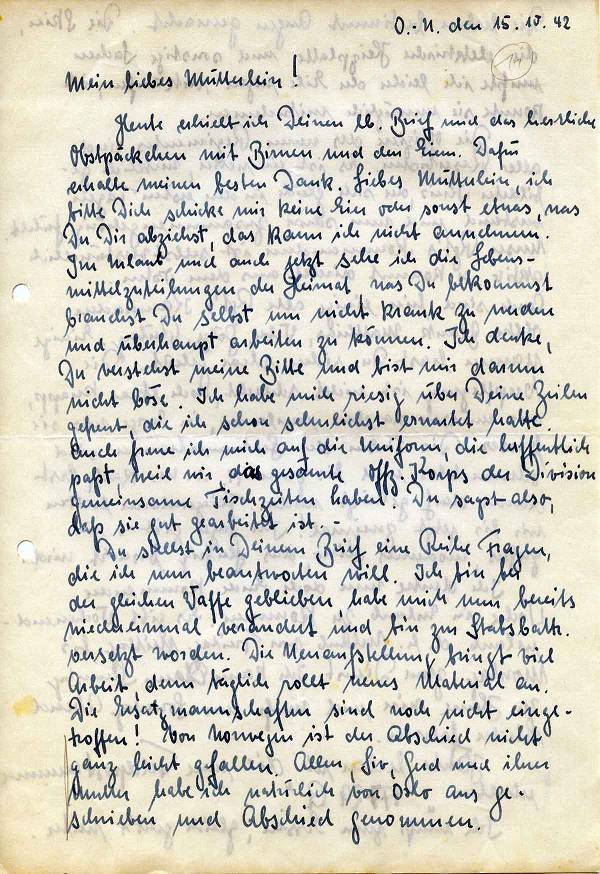 O.-U. den 15. 10. 42
14
Mein liebes Mütterlein!
Heute erhielt ich Deinen lb. Brief und das herrliche
Obstpäckchen mit Birnen und den Eiern. Dafür
erhalte meinen besten Dank. Liebes Mütterlein, ich
bitte Dich schicke mir keine Eier oder sonst etwas, was
Du Dir abziehst, das kann ich nicht annehmen.
Im Urlaub und auch jetzt sehe ich die Lebens-
mittelzuteilungen der Heimat was Du bekommst
brauchst Du selbst um nicht krank zu werden
und überhaupt arbeiten zu können. Ich denke,
Du verstehst meine Bitte und bist mir darum
nicht böse. Ich habe mich riesig über Deine Zeilen
gefreut, die ich schon sehnlichst erwartet hatte.
Auch freue ich mich auf die Uniform, die hoffentlich
paßt weil wir das gesamte Offz. Korps der Division
gemeinsame Tischzeiten haben. Du sagst also,
daß sie gut gearbeitet ist. -
Du stellst in Deinem Brief eine Reihe Fragen,
die ich nun beantworten will. Ich bin bei
der gleichen Waffe geblieben, habe mich nun bereits
wiedereinmal verändert und bin zur Stabsbattr.
versetzt worden. Die Neuaufstellung bringt viel
Arbeit, denn täglich rollt neues Material an.
Die Ersatzmannschaften sind noch nicht einge-
troffen! Von Norwegen ist der Abschied nicht
ganz leicht gefallen. Allen, Siv, und ihrer
habe ich natürlich von Oslo aus ge-
schrieben und Abschied genommen.